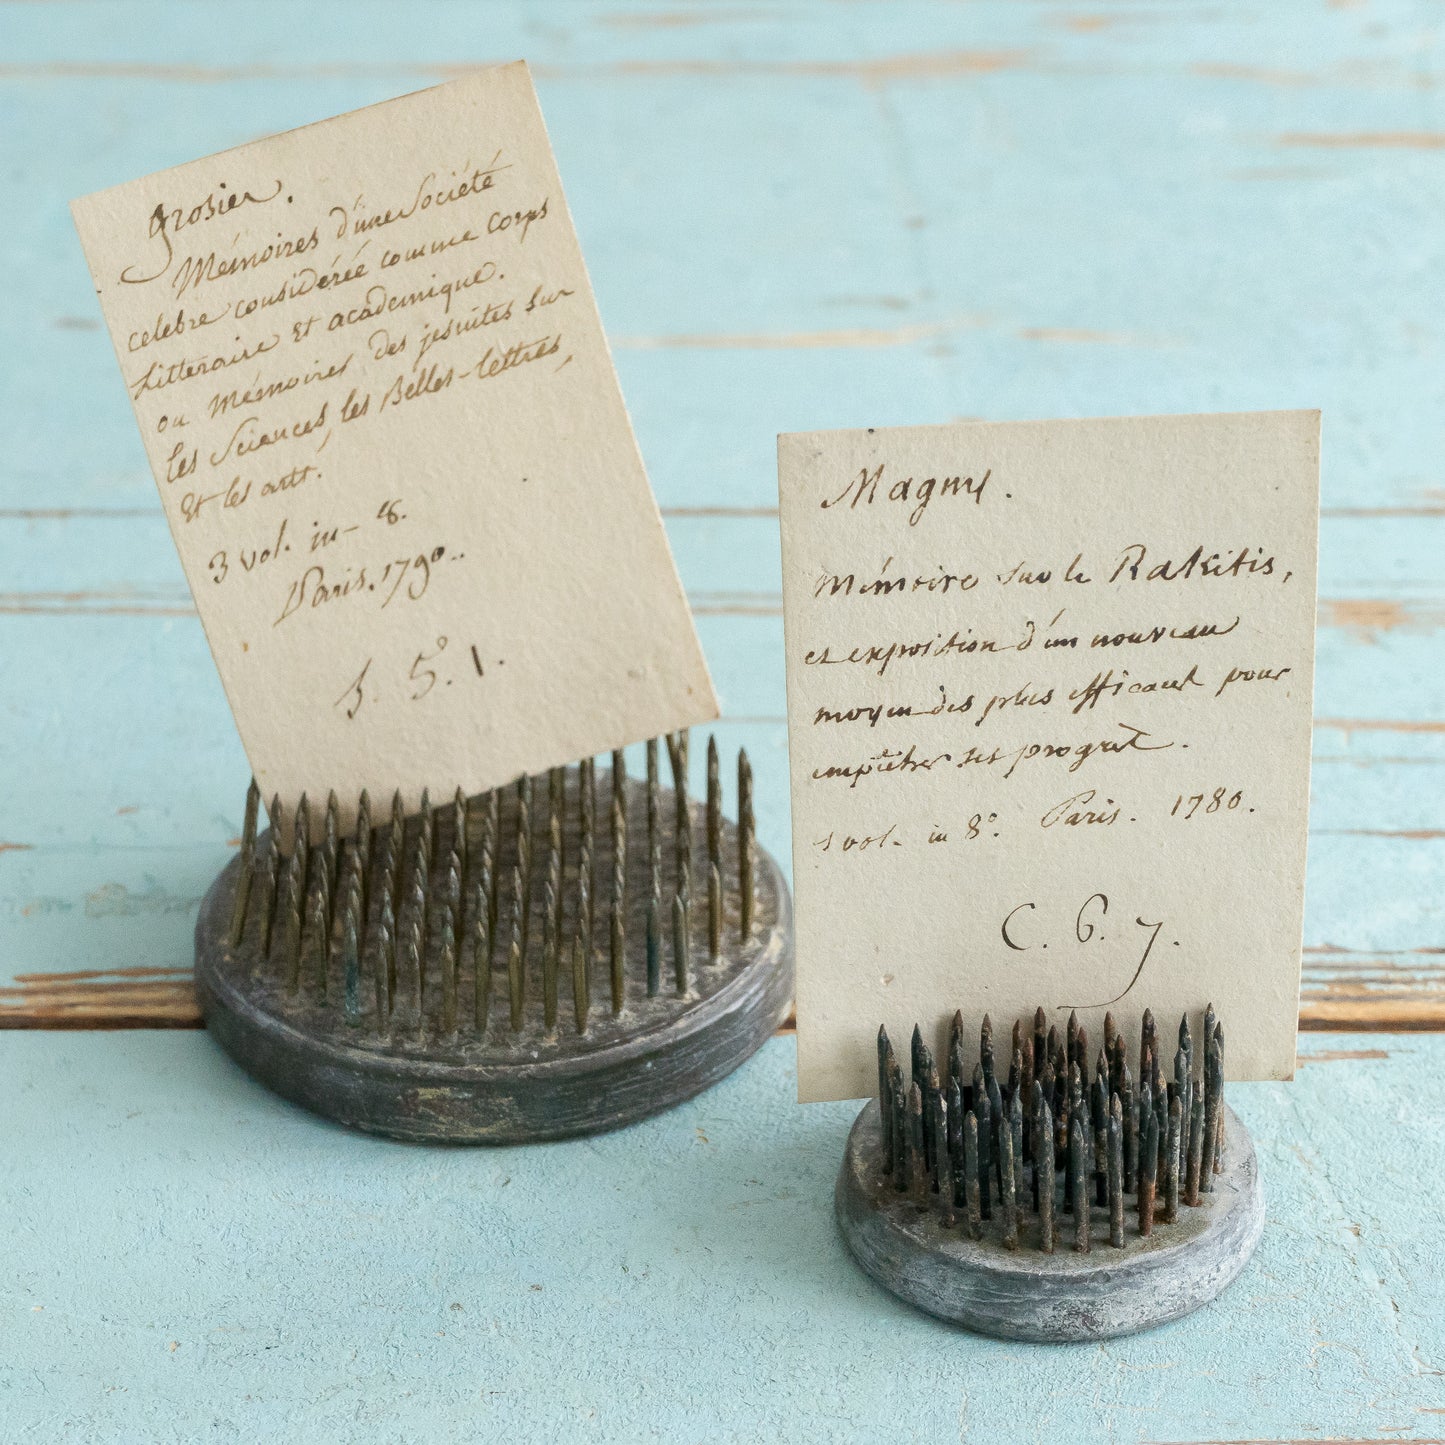 grosier.
Mémoires d'une Société
celebre considérée comme corps
Litteraire Et academique.
ou mémoires des jesuites sur
les Sciences, les Belles-lettres,
Et les arts.
3 vol. in-8.
Paris. 1790..
5. 1.
Magny.
Mémoire sur le Rakitis,
et exposition d'un nouveau
moyen des plus efficaces pour
empêcher ses progrès.
1 vol. in 8°. Paris. 1780.
C. 6. 7.